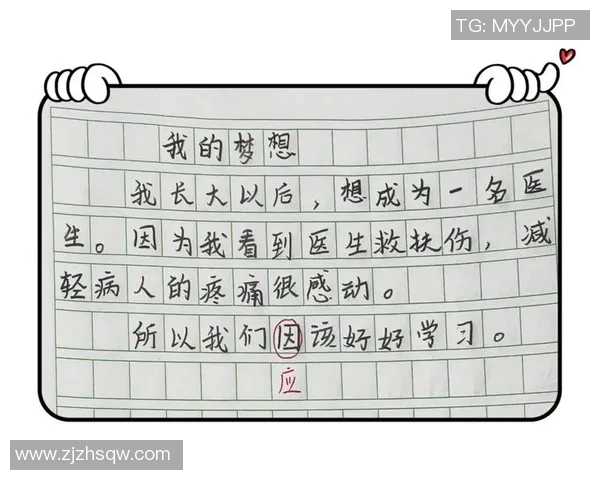 TG: MYYJJPP
我的梦想
我长大以后，想成为一名医
生。因为我看到医生救扶伤，减
轻病人的疼痛很感动。
所以我们因该好好学习。
应
www.zjzhsqw.com